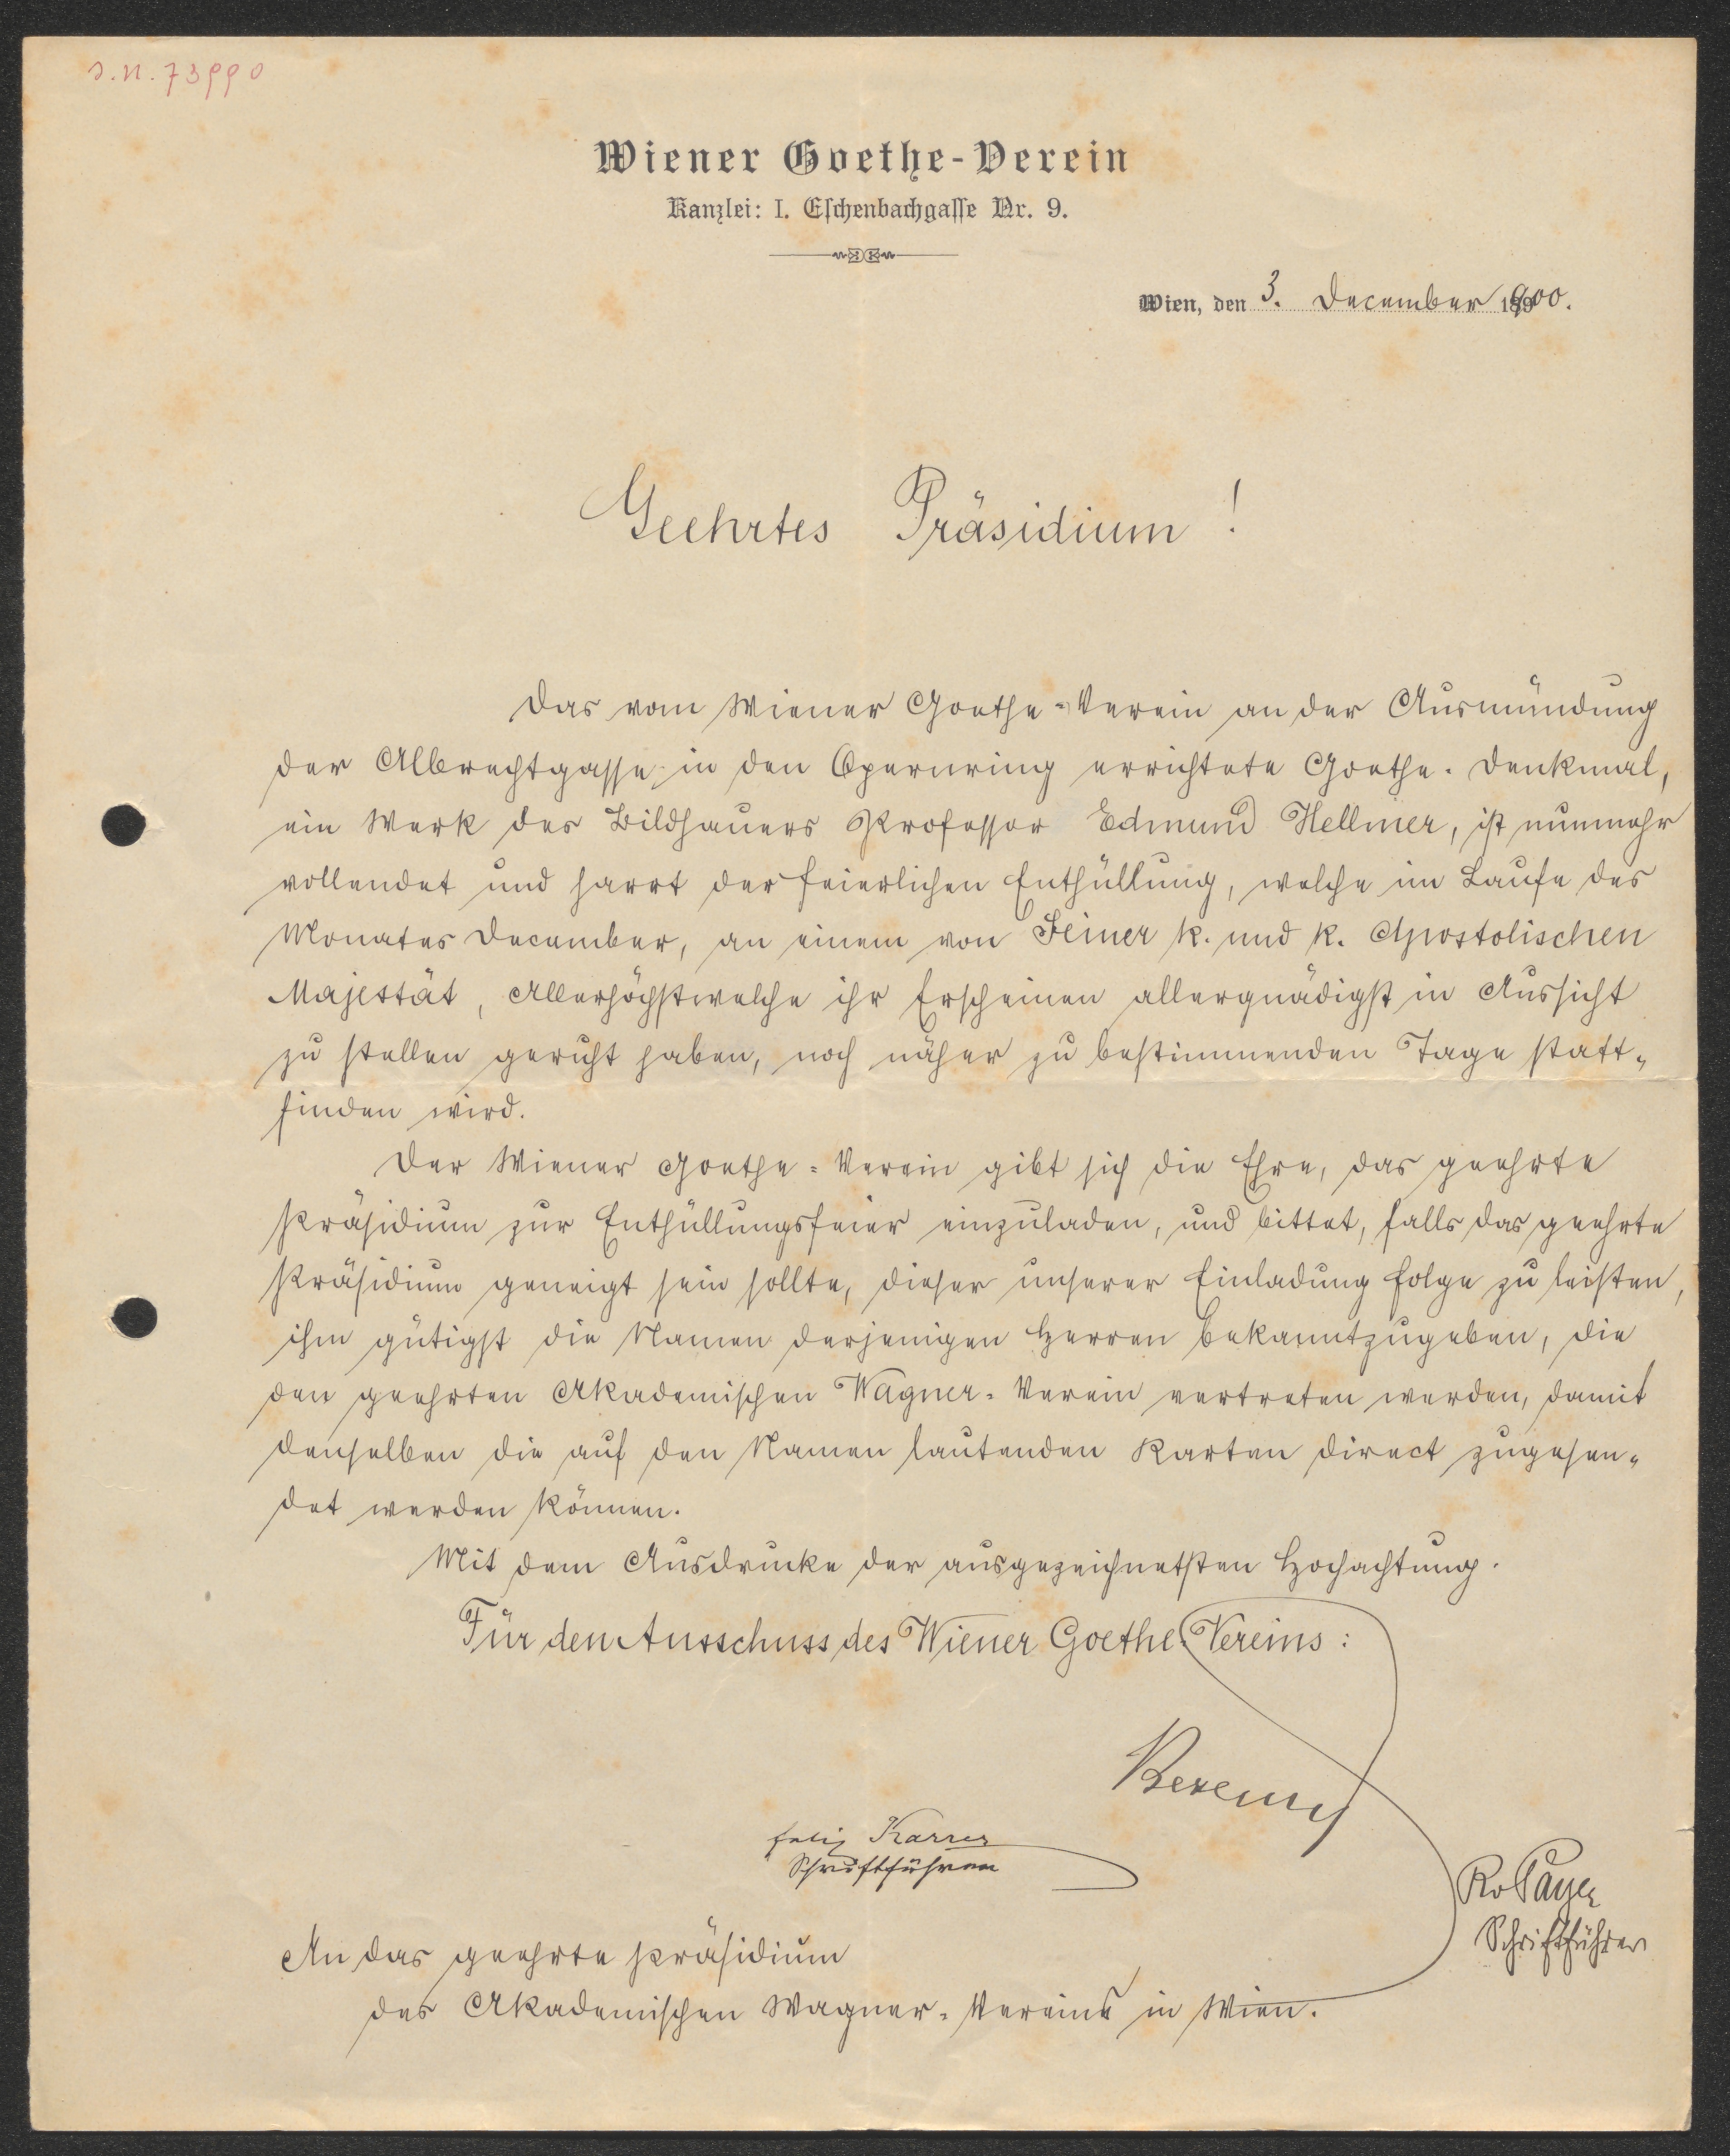 J.N. 73990
Wiener Goethe-Verein
Kanzlei: I. Eschenbachgasse Nr. 9.
Wien, den 3. December 1900.
Geehrtes Präsidium!
Das vom Wiener Goethe-Verein an der Ausmündung
der Albrechtgasse in den Opernring errichtete Goethe-Denkmal,
ein Werk des Bildhauers Professor Edmund Hellmer, ist nunmehr
vollendet und harrt der feierlichen Enthüllung, welche im Laufe des
Monates December, an einem von Seiner k. und k. Apostolischen
Majestät, Allerhöchstwelche ihr Erscheinen allergnädigst in Aussicht
zu stellen geruht haben, noch näher zu bestimmenden Tage statt-
finden wird.
Der Wiener Goethe-Verein gibt sich die Ehre, das geehrte
Präsidium zur Enthüllungsfeier einzuladen, und bittet, falls das geehrte
Präsidium geneigt sein sollte, dieser unserer Einladung Folge zu leisten,
ihm gütigst die Namen derjenigen Herren bekanntzugeben, die
den geehrten Akademischen Wagner-Verein vertreten werden, damit
denselben die auf den Namen lautenden Karten direct zugesen-
det werden können.
Mit dem Ausdrucke der ausgezeichnetsten Hochachtung.
Für den Ausschuss des Wiener Goethe-Vereins:
Bezecny
Felix Karrer
Schriftführer
R v Payer
Schriftführer
An das geehrte Präsidium
des Akademischen Wagner-Vereins in Wien.